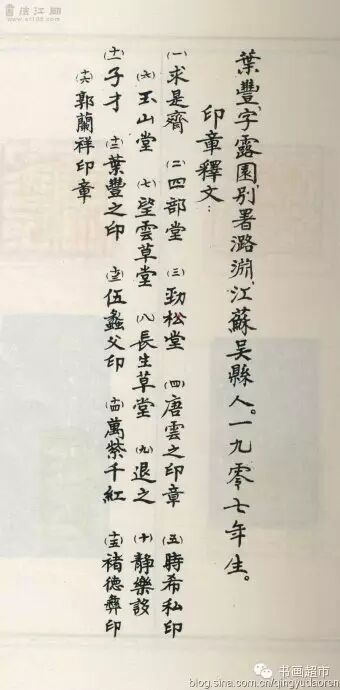 葉豐,字露園,别署潞淵,江蘇吴縣人。一九零七年生。
印章釋文:
(一)求是齋 (二)四部堂 (三)勁松堂 (四)唐雲之印章 (五)時希私印
(六)玉山堂 (七)望雲草堂 (八)長生草堂 (九)退之 (十)静樂
(十一)子才 (十二)葉豐之印 (十三)伍蠡父印 (十四)萬紫千紅 (十五)褚德彝印
(十六)郭蘭祥印章
书画超市
blog.sina.com.cn/qingyudaoren